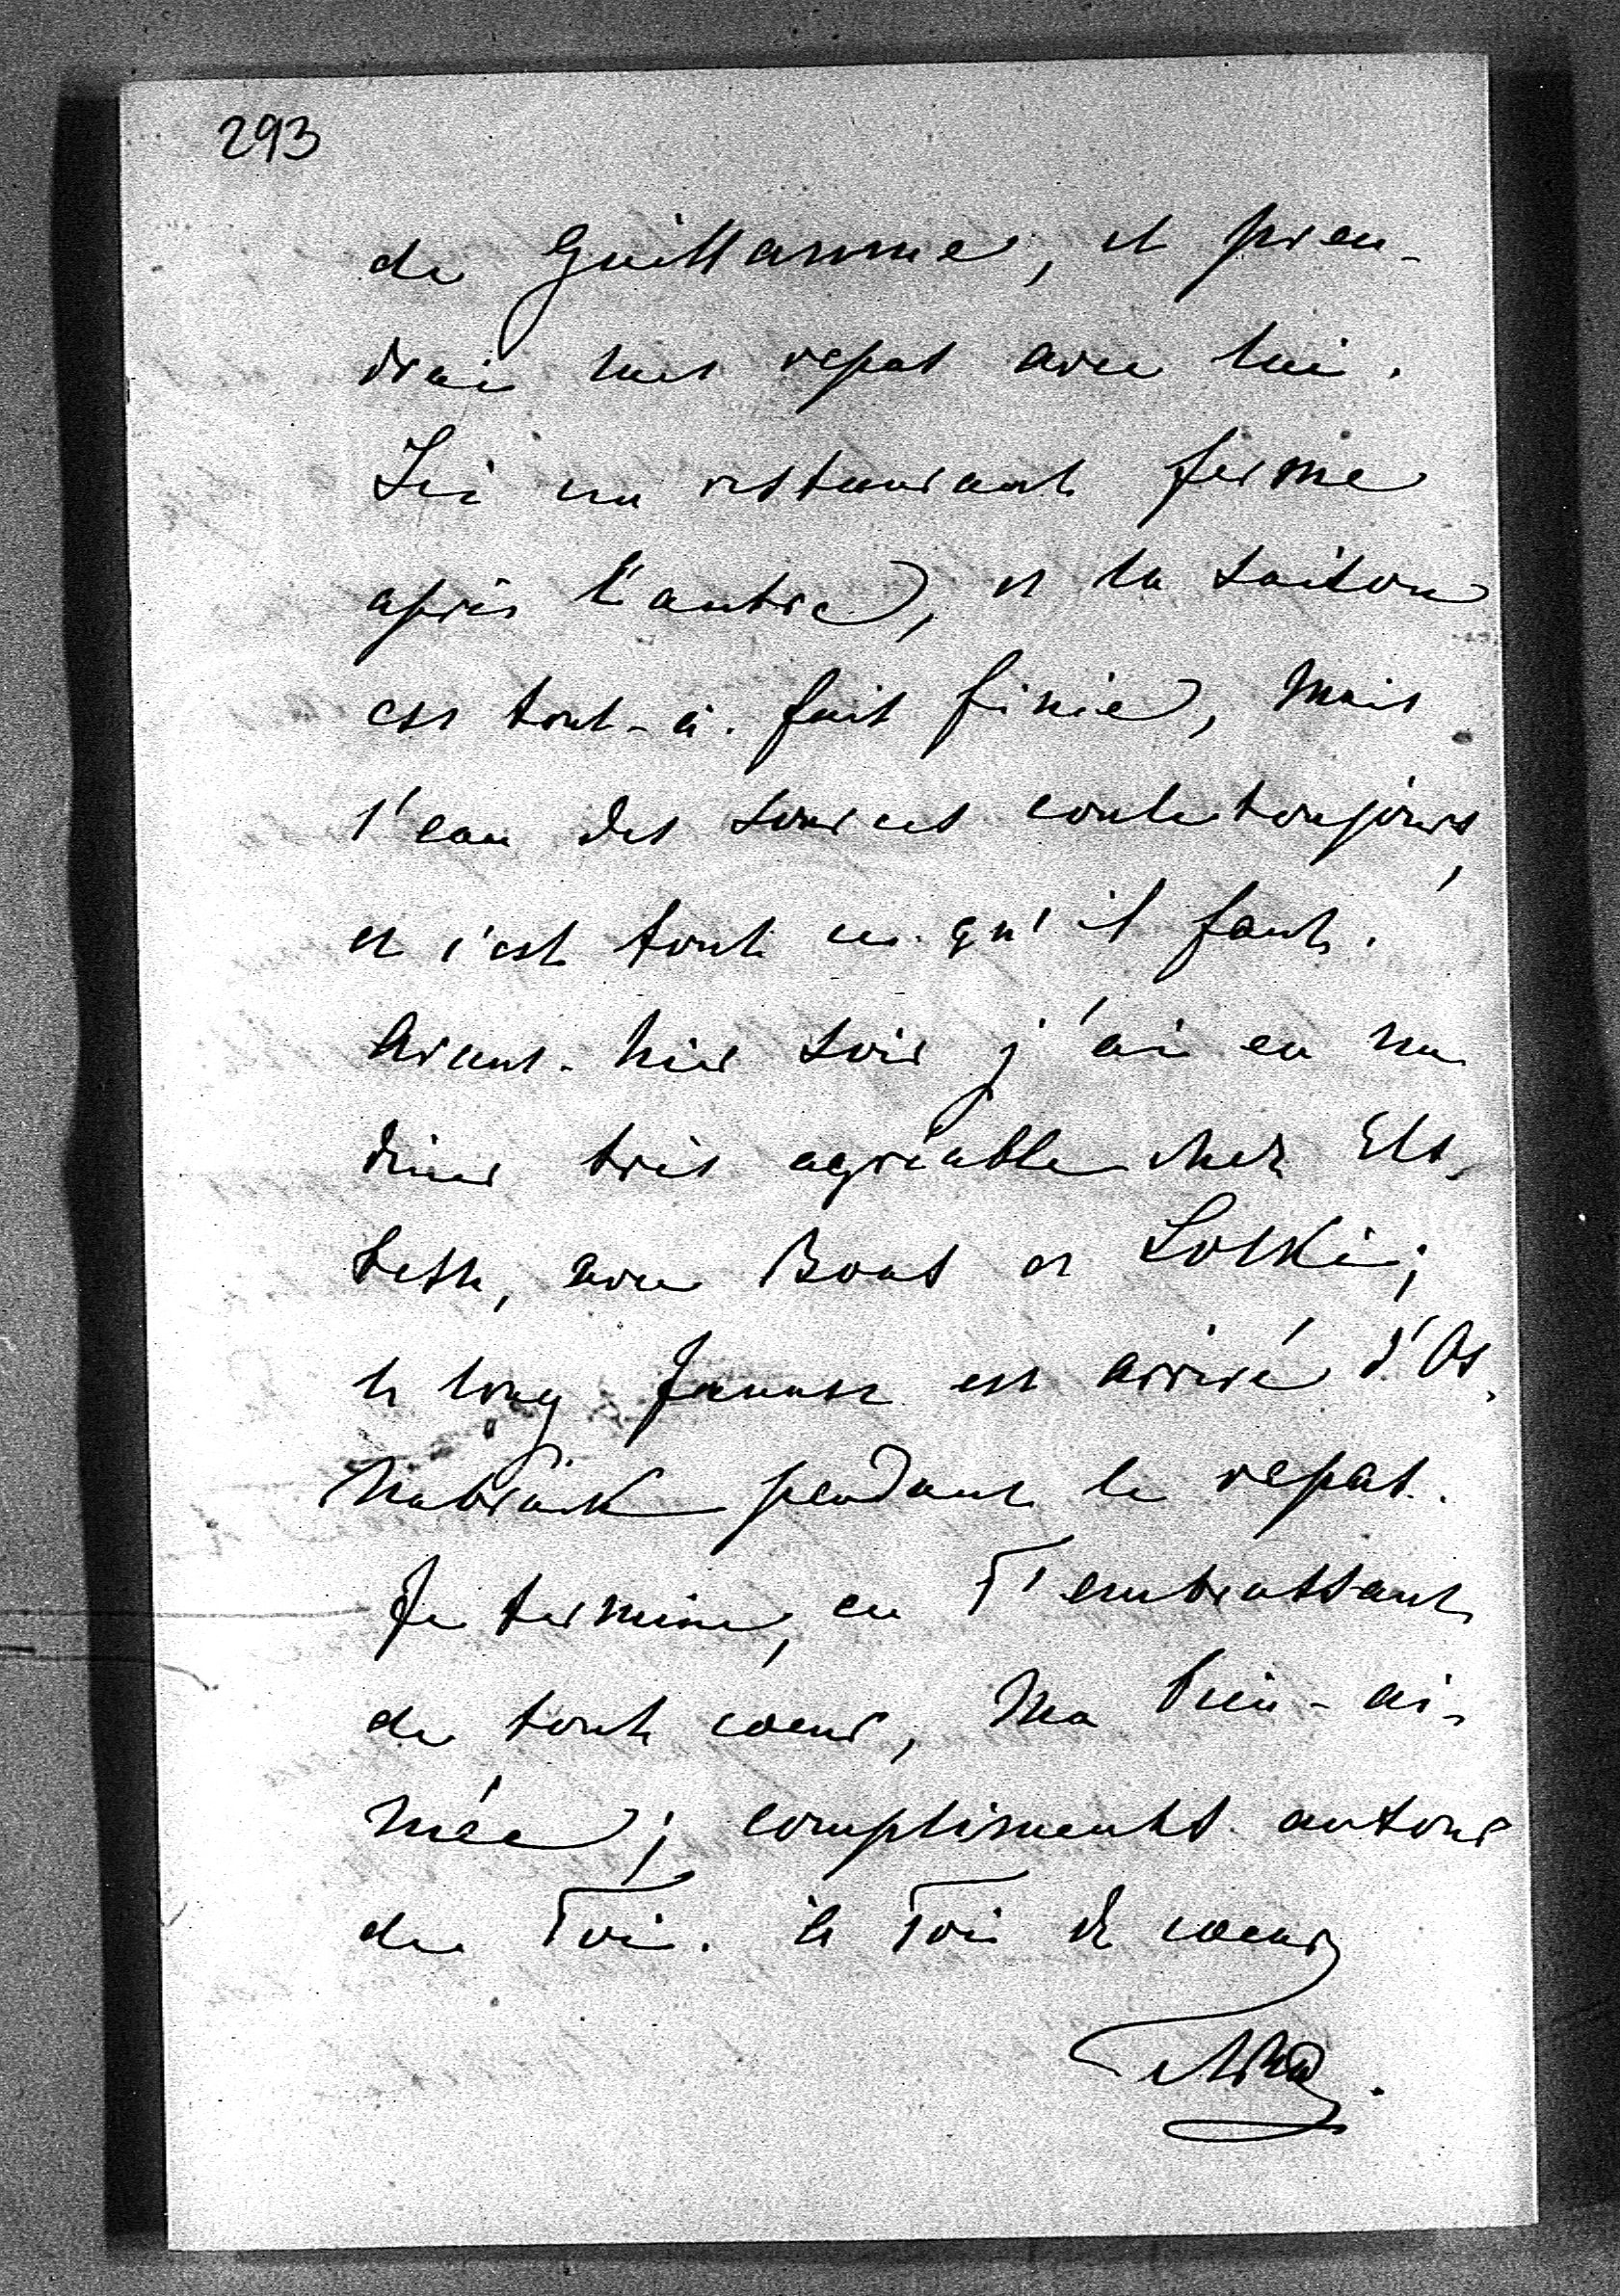 293
de Guillaume, et pren-
drai mes repas avec lui.
Ici un restaurant ferme
après l'autre, et la saison
est tout-à-fait finie, mais
l'eau des sources coule toujours,
et c'est tout ce qu'il faut.
Avant-hier soir j'ai eu un
diner très agréable chez Els-
beth, avec Boas et Lolki;
le long Janusz est arrivé d'Os-
nabrück pendant le repas.
Je termine, en T'embrassant
de tout coeur, ma bien-ai-
mée; compliments autour
de Toi. à Toi de coeur